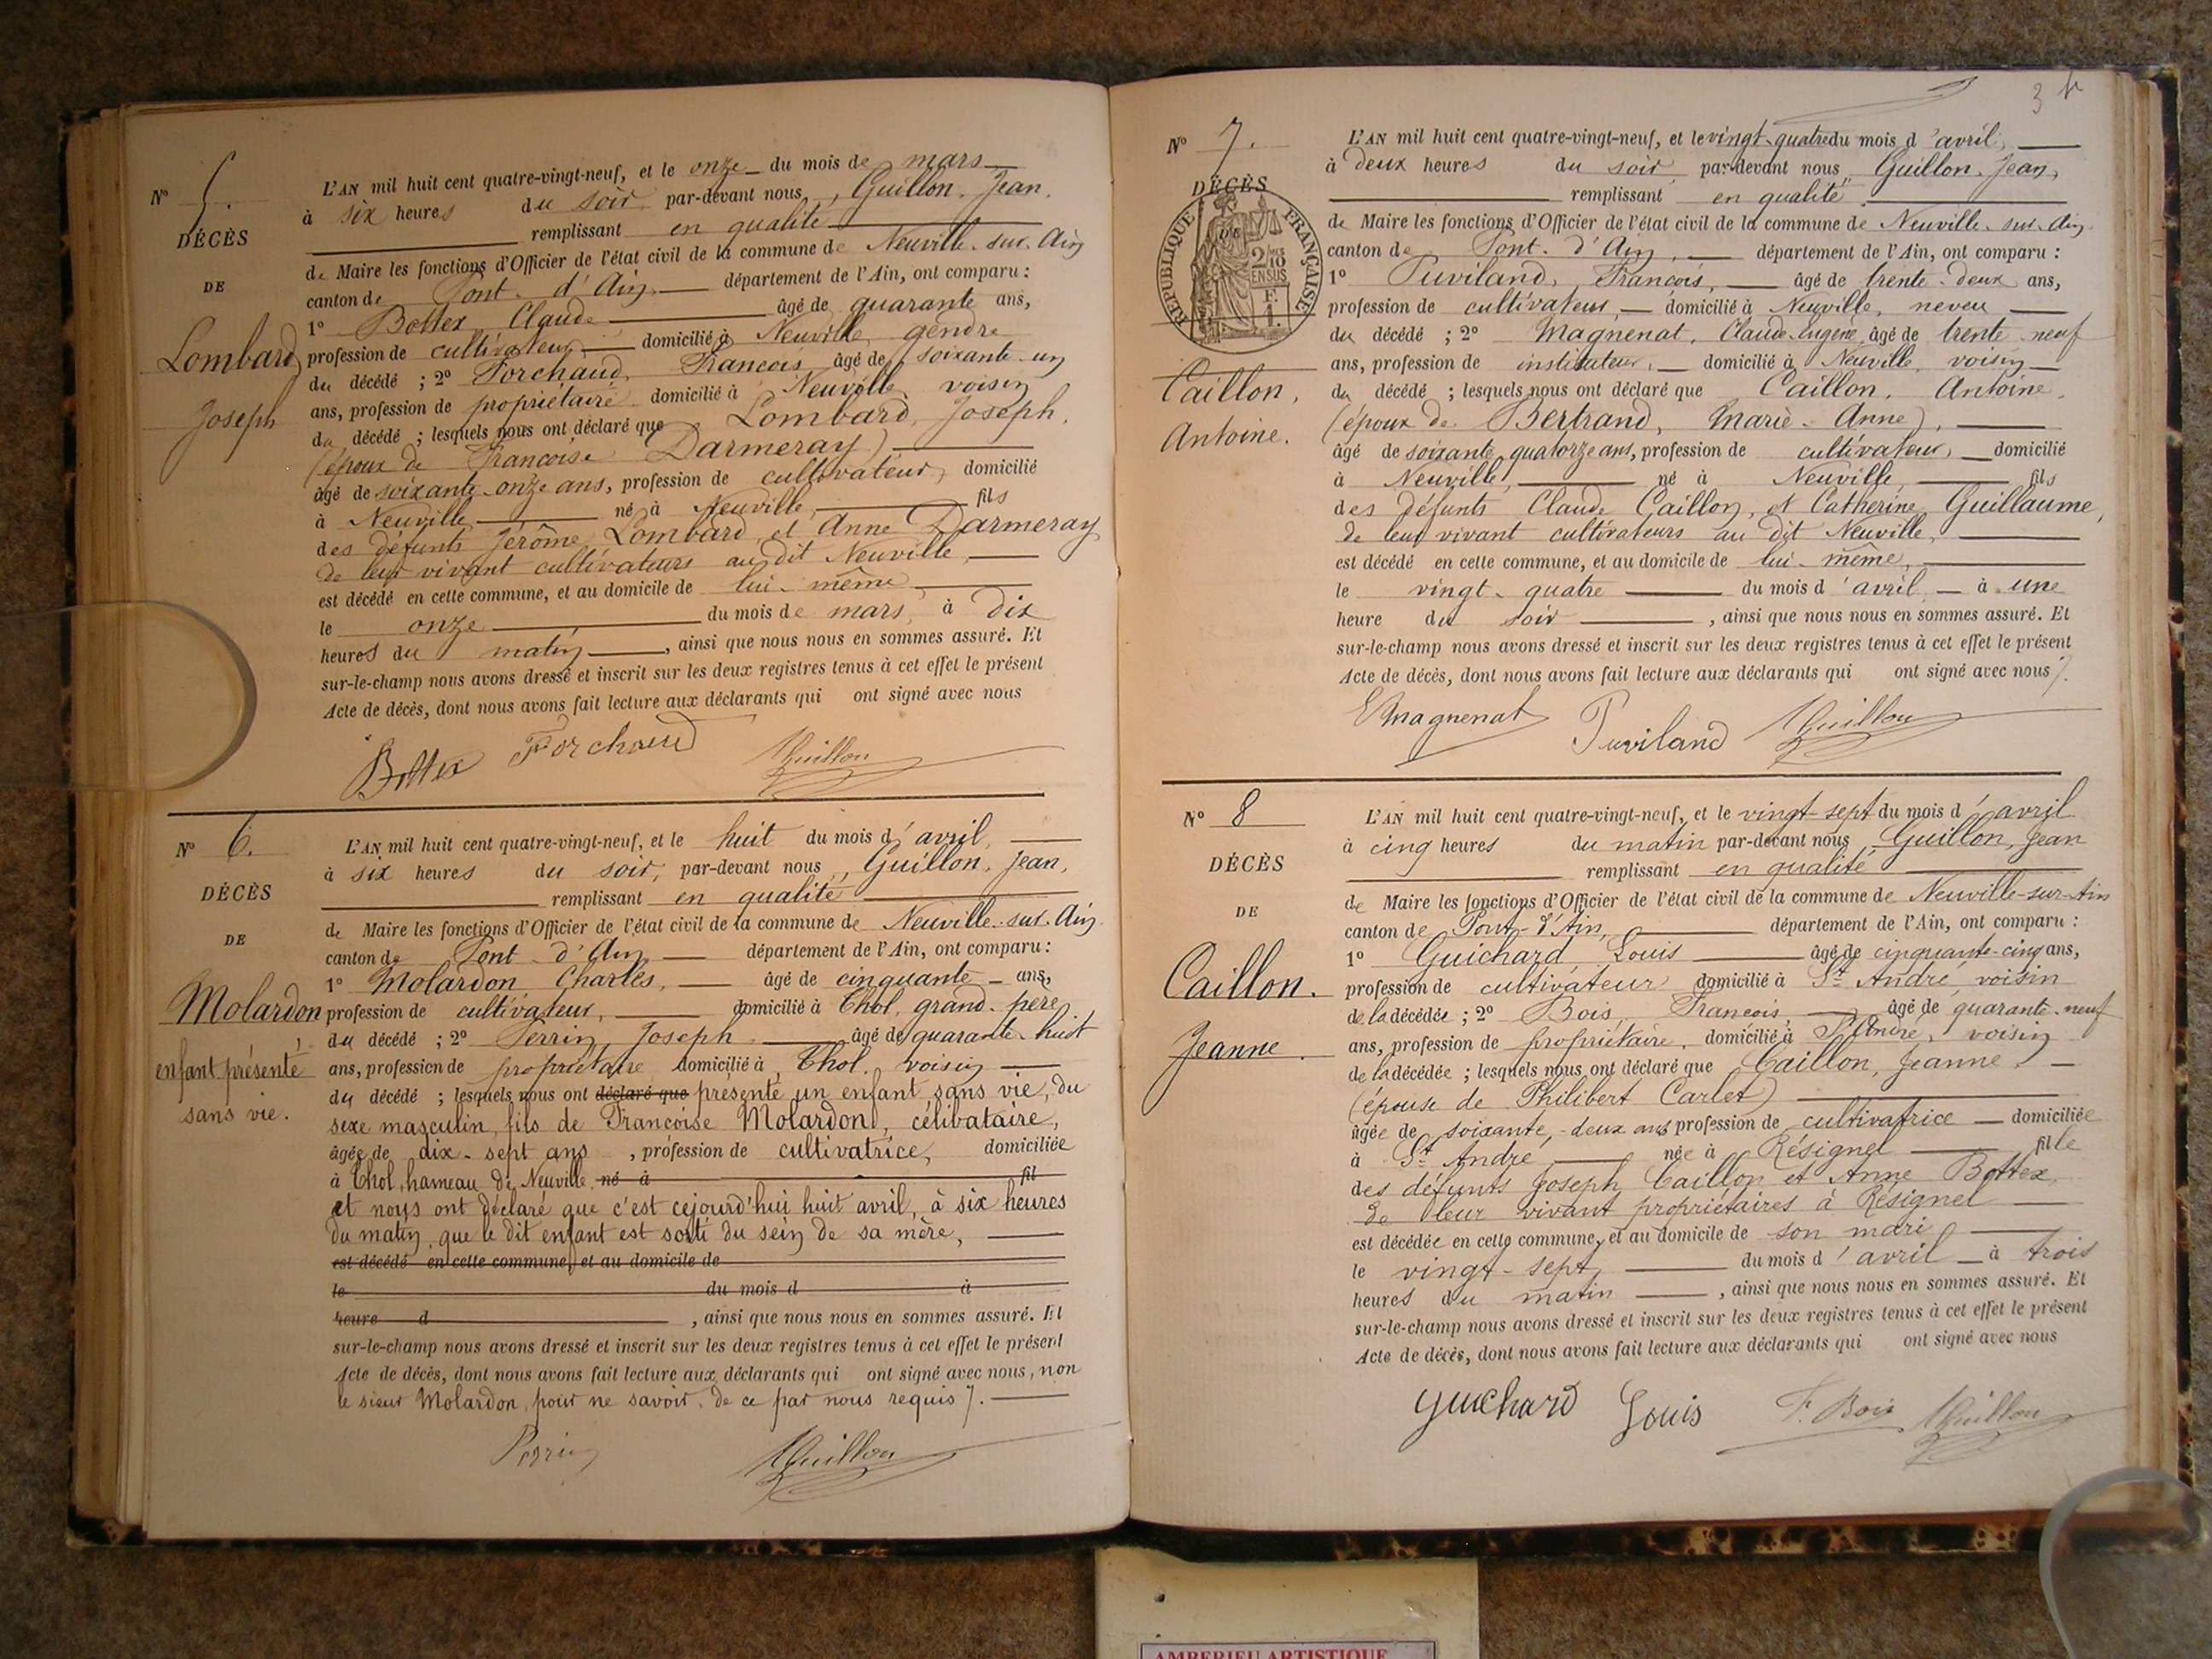 N° 5.
DÉCÈS
DE
Lombard
Joseph
L'AN mil huit cent quatre-vingt-neuf, et le onze du mois de mars
à six heures du soir par-devant nous, Guillon, Jean,
remplissant en qualité
de Maire les fonctions d'Officier de l'état civil de la commune de Neuville-sur-Ain
canton de Pont-d'Ain, département de l'Ain, ont comparu :
1° Bottex, Claude âgé de quarante ans,
profession de cultivateur, domicilié à Neuville, gendre
du décédé ; 2° Forchaud, François, âgé de soixante-un
ans, profession de propriétaire domicilié à Neuville, voisin
du décédé ; lesquels nous ont déclaré que Lombard, Joseph,
(époux de Françoise Darmeray)
âgé de soixante-onze ans, profession de cultivateur, domicilié
à Neuville, né à Neuville, fils
des défunts Jérôme Lombard, et Anne Darmeray
de leur vivant cultivateurs au dit Neuville,
est décédé en cette commune, et au domicile de lui-même
le onze du mois de mars, à dix
heures du matin, ainsi que nous nous en sommes assuré. Et
sur-le-champ nous avons dressé et inscrit sur les deux registres tenus à cet effet le présent
Acte de décès, dont nous avons fait lecture aux déclarants qui ont signé avec nous
Bottex Forchaud Guillon
N° 6.
DÉCÈS
DE
Molardon,
enfant présenté
sans vie.
L'AN mil huit cent quatre-vingt-neuf, et le huit du mois d'avril,
à six heures du soir, par-devant nous, Guillon, Jean,
remplissant en qualité
de Maire les fonctions d'Officier de l'état civil de la commune de Neuville-sur-Ain
canton de Pont-d'Ain département de l'Ain, ont comparu :
1° Molardon Charles, âgé de cinquante ans,
profession de cultivateur, domicilié à Thol, grand-père
du décédé ; 2° Perrin, Joseph âgé de quarante-huit
ans, profession de propriétaire domicilié à Thol, voisin
du décédé ; lesquels nous ont déclaré que présenté un enfant sans vie, du
sexe masculin, fils de Françoise Molardon, célibataire,
âgée de dix-sept ans, profession de cultivatrice, domiciliée
à Thol, hameau de Neuville, né à fil
et nous ont déclaré que c'est cejourd'hui huit avril, à six heures
du matin, que le dit enfant est sorti du sein de sa mère,
est décédé en cette commune, et au domicile de
le du mois d à
heure d , ainsi que nous nous en sommes assuré. Et
sur-le-champ nous avons dressé et inscrit sur les deux registres tenus à cet effet le présent
Acte de décès, dont nous avons fait lecture aux déclarants qui ont signé avec nous, non
le sieur Molardon, pour ne savoir, de ce par nous requis.
Perrin Guillon
3
N° 7.
DÉCÈS
DE
RÉPUBLIQUE FRANÇAISE
2/10 EN SUS
Caillon,
Antoine.
L'AN mil huit cent quatre-vingt-neuf, et le vingt-quatre du mois d'avril,
à deux heures du soir par-devant nous, Guillon, Jean,
remplissant en qualité
de Maire les fonctions d'Officier de l'état civil de la commune de Neuville-sur-Ain
canton de Pont-d'Ain, département de l'Ain, ont comparu :
1° Puviland, François, âgé de trente-deux ans,
profession de cultivateur, domicilié à Neuville, neveu
du décédé ; 2° Magnenat, Claude-Eugène, âgé de trente-neuf
ans, profession de instituteur, domicilié à Neuville, voisin
du décédé ; lesquels nous ont déclaré que Caillon, Antoine,
(époux de Bertrand, Marie-Anne),
âgé de soixante-quatorze ans, profession de cultivateur, domicilié
à Neuville, né à Neuville, fils
des défunts Claude Caillon, et Catherine Guillaume,
de leur vivant cultivateurs au dit Neuville,
est décédé en cette commune, et au domicile de lui-même,
le vingt-quatre du mois d'avril à une
heure du soir, ainsi que nous nous en sommes assuré. Et
sur-le-champ nous avons dressé et inscrit sur les deux registres tenus à cet effet le présent
Acte de décès, dont nous avons fait lecture aux déclarants qui ont signé avec nous.
EMagnenat Puviland Guillon
N° 8
DÉCÈS
DE
Caillon.
Jeanne.
L'AN mil huit cent quatre-vingt-neuf, et le vingt-sept du mois d'avril
à cinq heures du matin par-devant nous, Guillon, Jean
remplissant en qualité
de Maire les fonctions d'Officier de l'état civil de la commune de Neuville-sur-Ain
canton de Pont-d'Ain, département de l'Ain, ont comparu :
1° Guichard, Louis âgé de cinquante-cinq ans,
profession de cultivateur domicilié à St André, voisin
de la décédée ; 2° Bois, François, âgé de quarante-neuf
ans, profession de propriétaire, domicilié à St André, voisin
de la décédée ; lesquels nous ont déclaré que Caillon, Jeanne,
(épouse de Philibert Carlet)
âgée de soixante-deux ans profession de cultivatrice domiciliée
à St André, née à Résignel fille
des défunts Joseph Caillon et Anne Bottex,
de leur vivant propriétaires à Résignel
est décédée en cette commune, et au domicile de son mari
le vingt-sept du mois d'avril à trois
heures du matin, ainsi que nous nous en sommes assuré. Et
sur-le-champ nous avons dressé et inscrit sur les deux registres tenus à cet effet le présent
Acte de décès, dont nous avons fait lecture aux déclarants qui ont signé avec nous
Guichard Louis F. Bois Guillon
AMBERIEU ARTISTIQUE